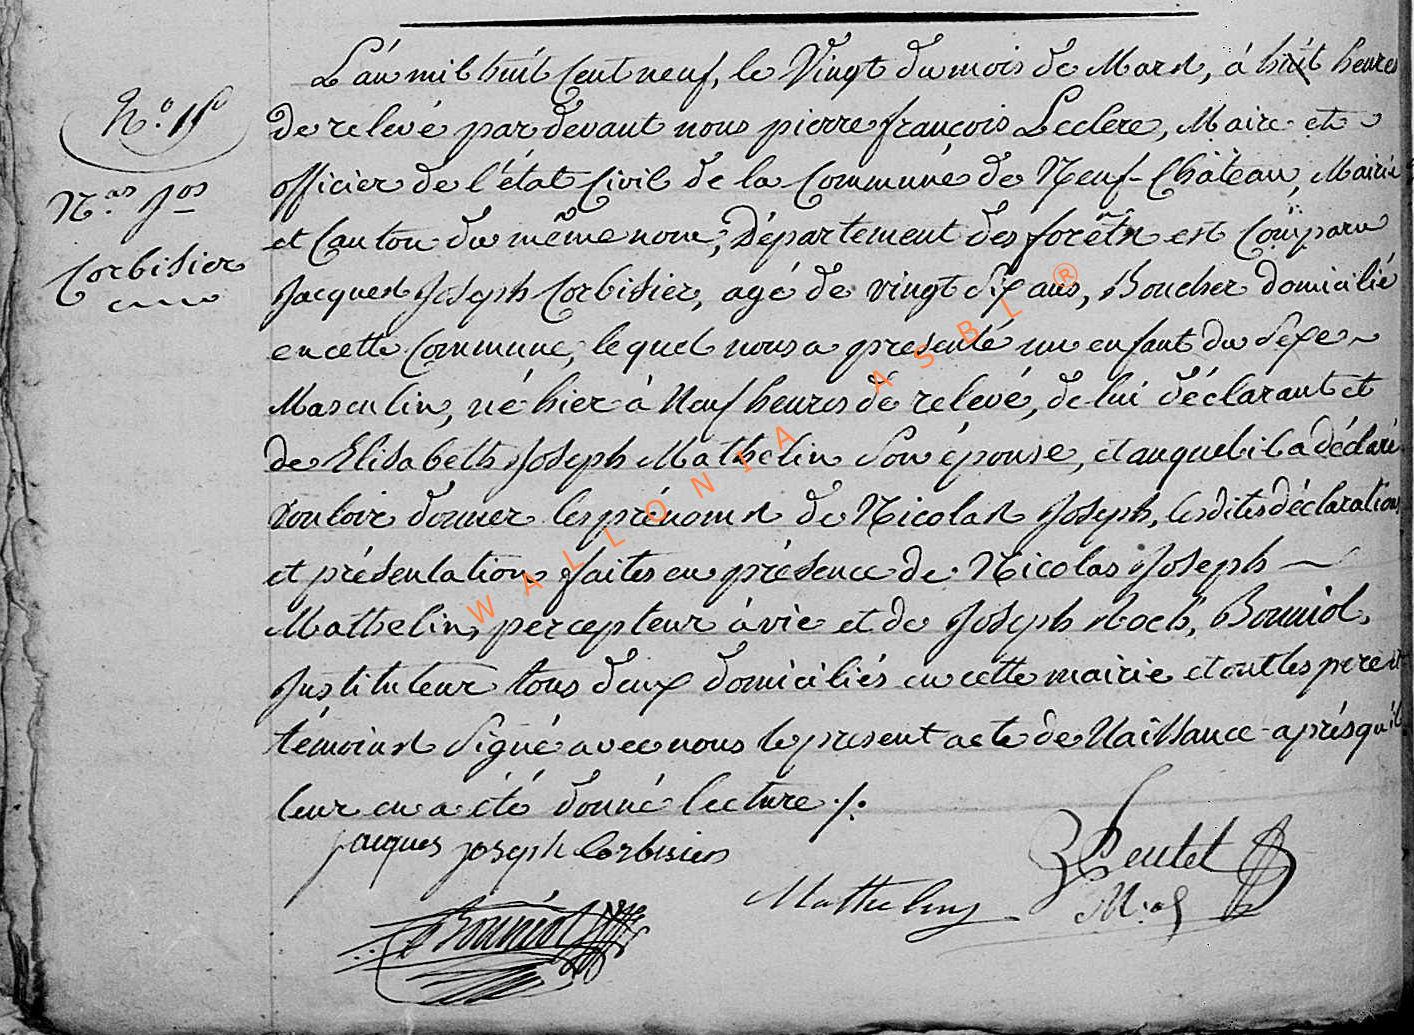 L'an mil huit Cent neuf, le Vingt du mois de Mars, à huit heures
de relevé par devant nous pierre françois Leclere, Maire et
officier de l'état Civil de la Commune de Neuf-Château, Mairie
et Canton du même nom, Département des forêts est Comparu
Jacques Joseph Corbisier, agé de vingt Six ans, Boucher domicilié
en cette Commune, lequel nous a presenté un enfant du Sexe
Masculin, né hier à Neuf heures de relevé, de lui déclarant et
de Elisabeth Joseph Mathelin Son épouse, et auquel il a déclaré
vouloir donner les prénoms de Nicolas Joseph, lesdites déclaration
et présentation faites en présence de Nicolas Joseph
Mathelin, percepteur à vie et de Joseph Roch, Bouniol,
Instituteur tous deux domiciliés en cette mairie et ont les pere et
témoins Signé avec nous le present acte de Naissance après qu'il
leur en a été donné lecture ./.
N.°
N.as Jos
Corbisier
jacques joseph Corbisier
Mathelin
Bouniol
WALLONIA ASBL ®